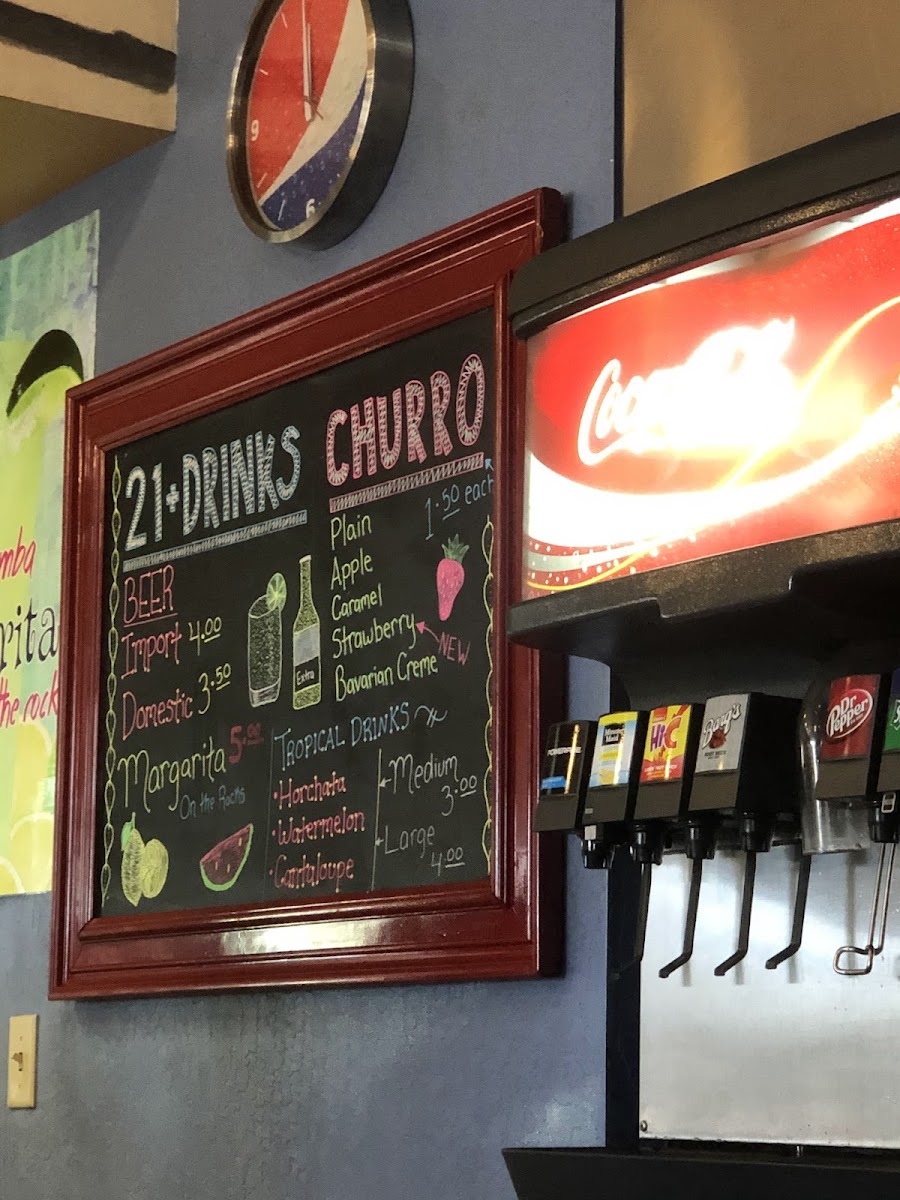 9
6
21+ DRINKS
BEER
Import 4.00
Domestic 3.50
Margarita 5.00
On the Rocks
Extra
CHURRO
1.50 each
Plain
Apple
Caramel
Strawberry
NEW
Bavarian Creme
TROPICAL DRINKS
Horchata
Watermelon
Cantaloupe
Medium
3.00
Large
4.00
mba
rita
the rock
Coca-Cola
POWERADE
Minute Maid
Hi-C
Barq's
Dr Pepper